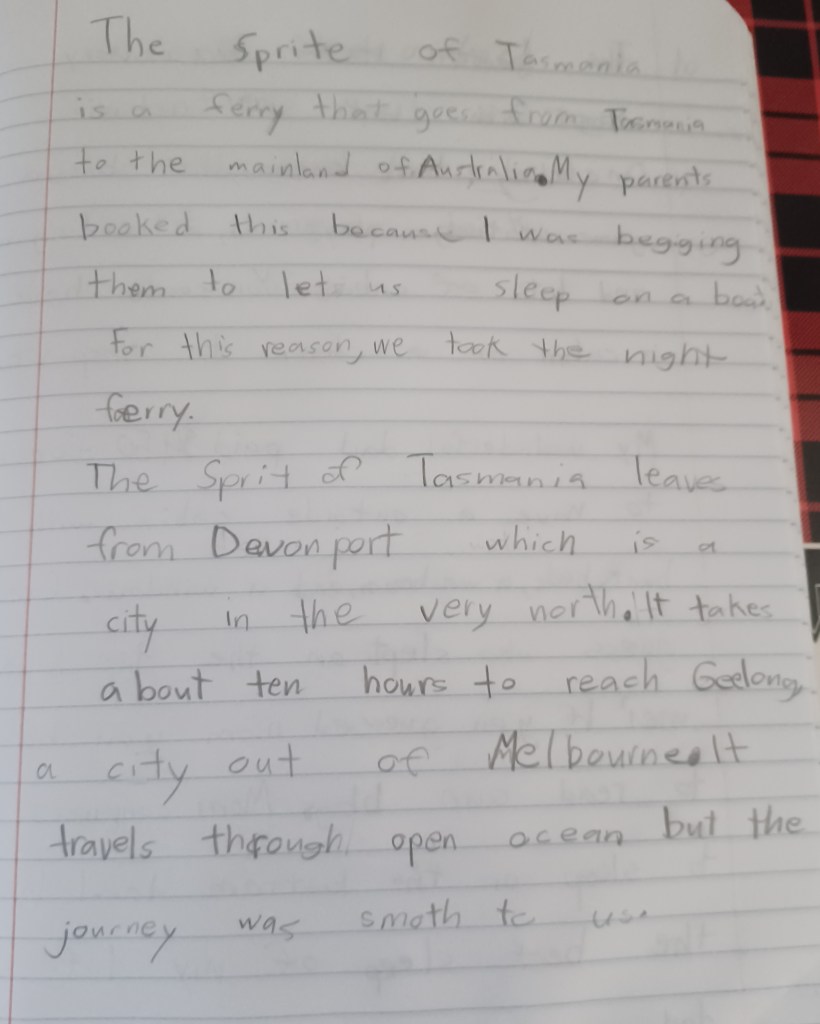 The Sprite of Tasmania
is a ferry that goes from Tasmania
to the mainland of Australia.My parents
booked this because I was begging
them to let us sleep on a boat
For this reason, we took the night
ferry.
The Sprit of Tasmania leaves
from Devonport which is a
city in the very north.It takes
about ten hours to reach Geelong,
a city out of Melbourne.It
travels through open ocean but the
journey was smoth to us.